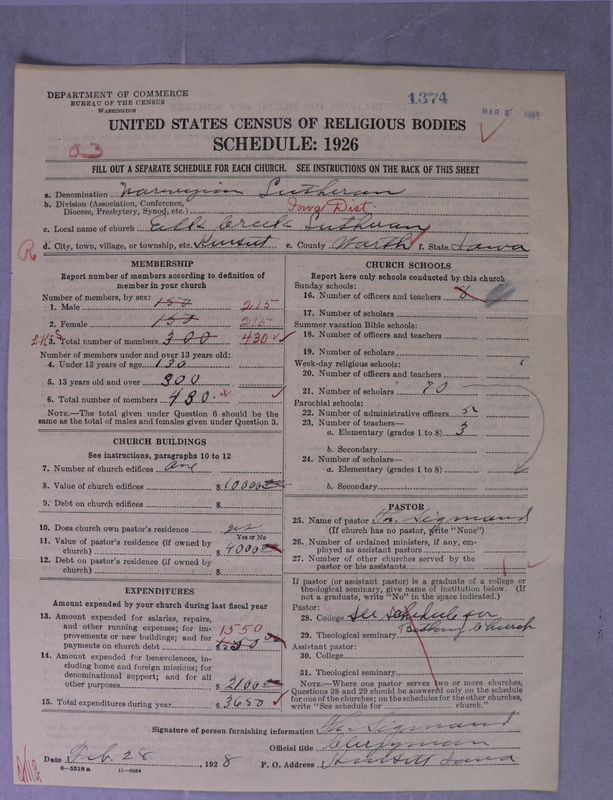 DEPARTMENT OF COMMERCE
BUREAU OF THE CENSUS
WASHINGTON
1374
MAR 2
UNITED STATES CENSUS OF RELIGIOUS BODIES
SCHEDULE: 1926
FILL OUT A SEPARATE SCHEDULE FOR EACH CHURCH. SEE INSTRUCTIONS ON THE BACK OF THIS SHEET
a. Denomination Norwegian Lutheran
b. Division (Association, Conference,
Diocese, Presbytery, Synod, etc.) Iowa Dist.
c. Local name of church Elk Creek Lutheran
d. City, town, village, or township, etc. Kensett e. County Worth f. State Iowa
R
MEMBERSHIP
Report number of members according to definition of
member in your church
Number of members, by sex:
1. Male 150 215
2. Female 150 215
3. Total number of members 300 430
Number of members under and over 13 years old:
4. Under 13 years of age 130
5. 13 years old and over 300
6. Total number of members 430
NOTE.—The total given under Question 6 should be
same as the total of males and females given under Question 3.
CHURCH BUILDINGS
See instructions, paragraphs 10 to 12
7. Number of church edifices one
8. Value of church edifices $ 10000
9. Debt on church edifices $
10. Does church own pastor's residence yes
Yes or No
11. Value of pastor's residence (if owned by
church) $ 4000
12. Debt on pastor's residence (if owned by
church) $
EXPENDITURES
Amount expended by your church during last fiscal year
13. Amount expended for salaries, repairs,
and other running expenses; for im-
provements or new buildings; and for
payments on church debt 1550 $
14. Amount expended for benevolences, in-
cluding home and foreign missions; for
denominational support; and for all
other purposes $ 2100
15. Total expenditures during year $ 3650
CHURCH SCHOOLS
Report here only schools conducted by this church
Sunday schools:
16. Number of officers and teachers 8
17. Number of scholars
Summer vacation Bible schools:
18. Number of officers and teachers
19. Number of scholars
Week-day religious schools:
20. Number of officers and teachers
21. Number of scholars 80
Parochial schools:
22. Number of administrative officers
23. Number of teachers—
a. Elementary (grades 1 to 8) 3
b. Secondary
24. Number of scholars—
a. Elementary (grades 1 to 8)
b. Secondary
PASTOR
25. Name of pastor Th. Sigmand
(If church has no pastor, write "None")
26. Number of ordained ministers, if any, em-
ployed as assistant pastors
27. Number of other churches served by the
pastor or his assistants 1
If pastor (or assistant pastor) is a graduate of a college or
theological seminary, give name of institution below. (If
not a graduate, write "No" in the space indicated.)
Pastor:
28. College see schedule for
29. Theological seminary Church
Assistant pastor:
30. College
31. Theological seminary
NOTE.—Where one pastor serves two or more churches,
Questions 28 and 29 should be answered only on the schedule
for one of the churches; on the schedules for the other churches,
write "See schedule for church."
Signature of person furnishing information Th. Sigmand
Official title Clergyman
Date Feb. 28, 1928 P. O. Address Kensett Iowa
8—5518a 11—9054